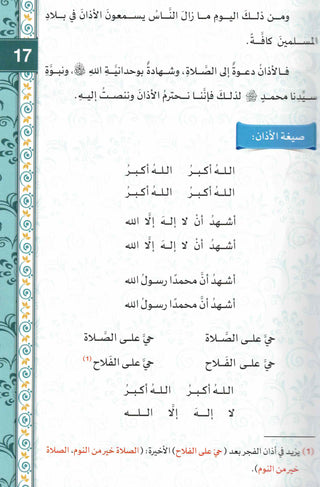 ومـن ذلـك اليـوم مـا زال النَّـاس يسـمعونَ الأذانَ في بـلادِ
المسلمينَ كافَّةً.
17
فـالأذانُ دعـوةٌ إلى الصَّـلاةِ، وشـهادةٌ بوحدانيَّةِ اللهِ ﷻ، ونبـوَّةِ
سيِّدنا محمدٍ ﷺ لذلـكَ فإنَّنـا نحتـرمُ الأذانَ وننصـتُ إليـهِ.
صيغة الأذان:
اللـهُ أكبـرُ اللـهُ أكبـرُ
اللـهُ أكبـرُ اللـهُ أكبـرُ
أشـهدُ أنْ لا إلـهَ إلَّا الله
أشـهدُ أنْ لا إلـهَ إلَّا الله
أشهدُ أنَّ محمدًا رسـولُ الله
أشهدُ أنَّ محمدًا رسـولُ الله
حيَّ علـى الصَّـلاة حيَّ علـى الصَّـلاة
حيَّ علـى الفَلاح حيَّ علـى الفَلاح (1)
اللـهُ أكبـرُ اللـهُ أكبـرُ
لا إلـهَ إلَّا اللـه
(1) يزيد في أذان الفجر بعد (حيَّ على الفلاح) الأخيرة: (الصلاة خير من النوم، الصلاة
خير من النوم).